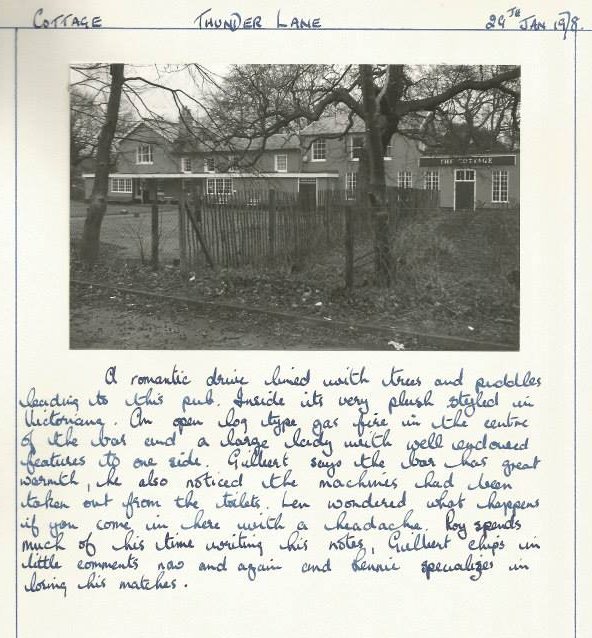 COTTAGE THUNDER LANE 29TH JAN 1978.
THE COTTAGE
A romantic drive lined with trees and puddles
leading to this pub. Inside its very plush styled in
Victoriana. An open log type gas fire in the centre
of the bar and a large lady with well endowed
features to one side. Gilbert says the bar has great
warmth, he also noticed the machines had been
taken out from the toilets. Len wondered what happens
if you come in here with a headache. Roy spends
much of his time writing his notes, Gilbert chips in
little comments now and again and Lennie specializes in
losing his matches.